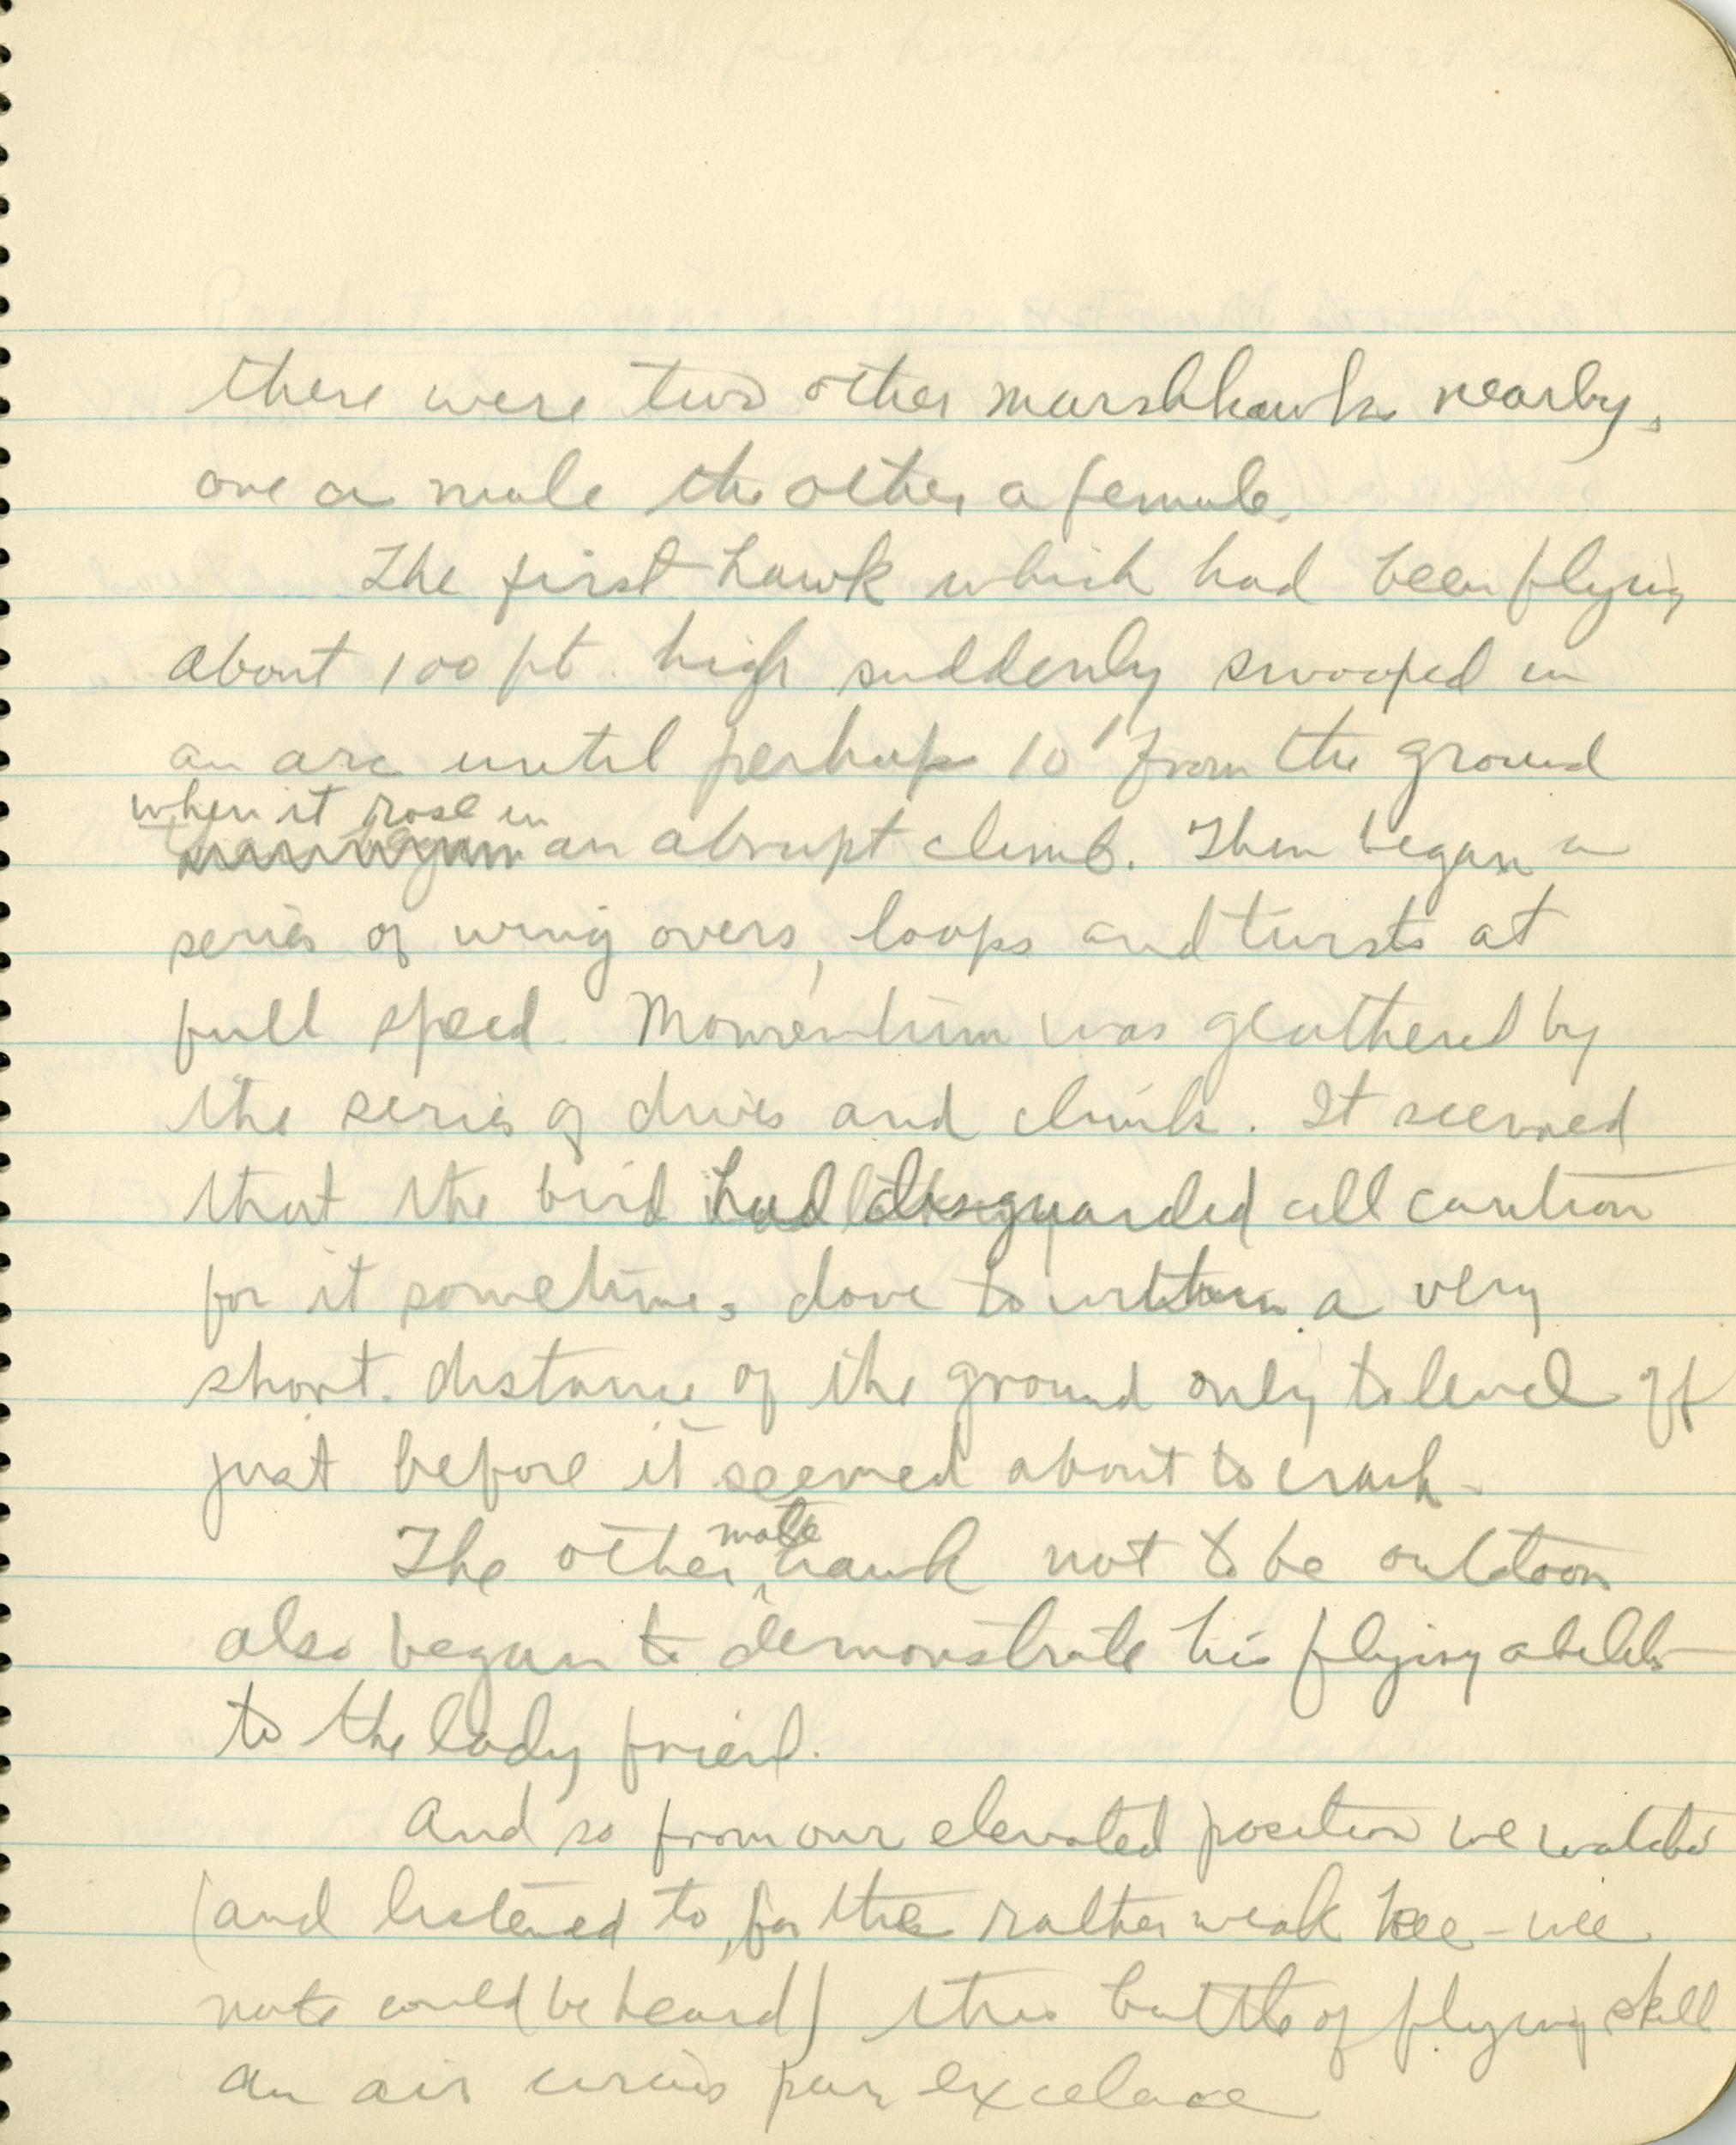 there were two other marshhawks nearby,
one a male the other a female.
The first hawk which had been flying
about 100 ft. high suddenly swooped in
an arc until perhaps 10' from the ground
when it rose in
an abrupt climb. Then began a
series of wing overs, loops and twists at
full speed. Momentum was gathered by
the series of dives and climbs. It seemed
that the bird had disguarded all caution
for it sometimes dove to within a very
short distance of the ground only to level off
just before it seemed about to crash.
male
The other hawk not to be outdoon
also began to demonstrate his flying ability
to the lady friend.
And so from our elevated position we watched
(and listened to, for the rather weak kee-wee
note could be heard) this battle of flying skill
an air circus par excelance